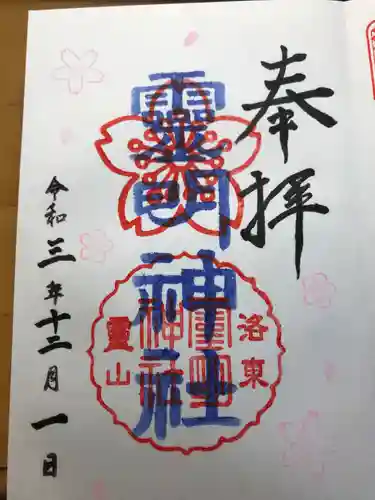 奉拝
靈明神社
洛東
靈明神社
靈山
令和三年十二月一日